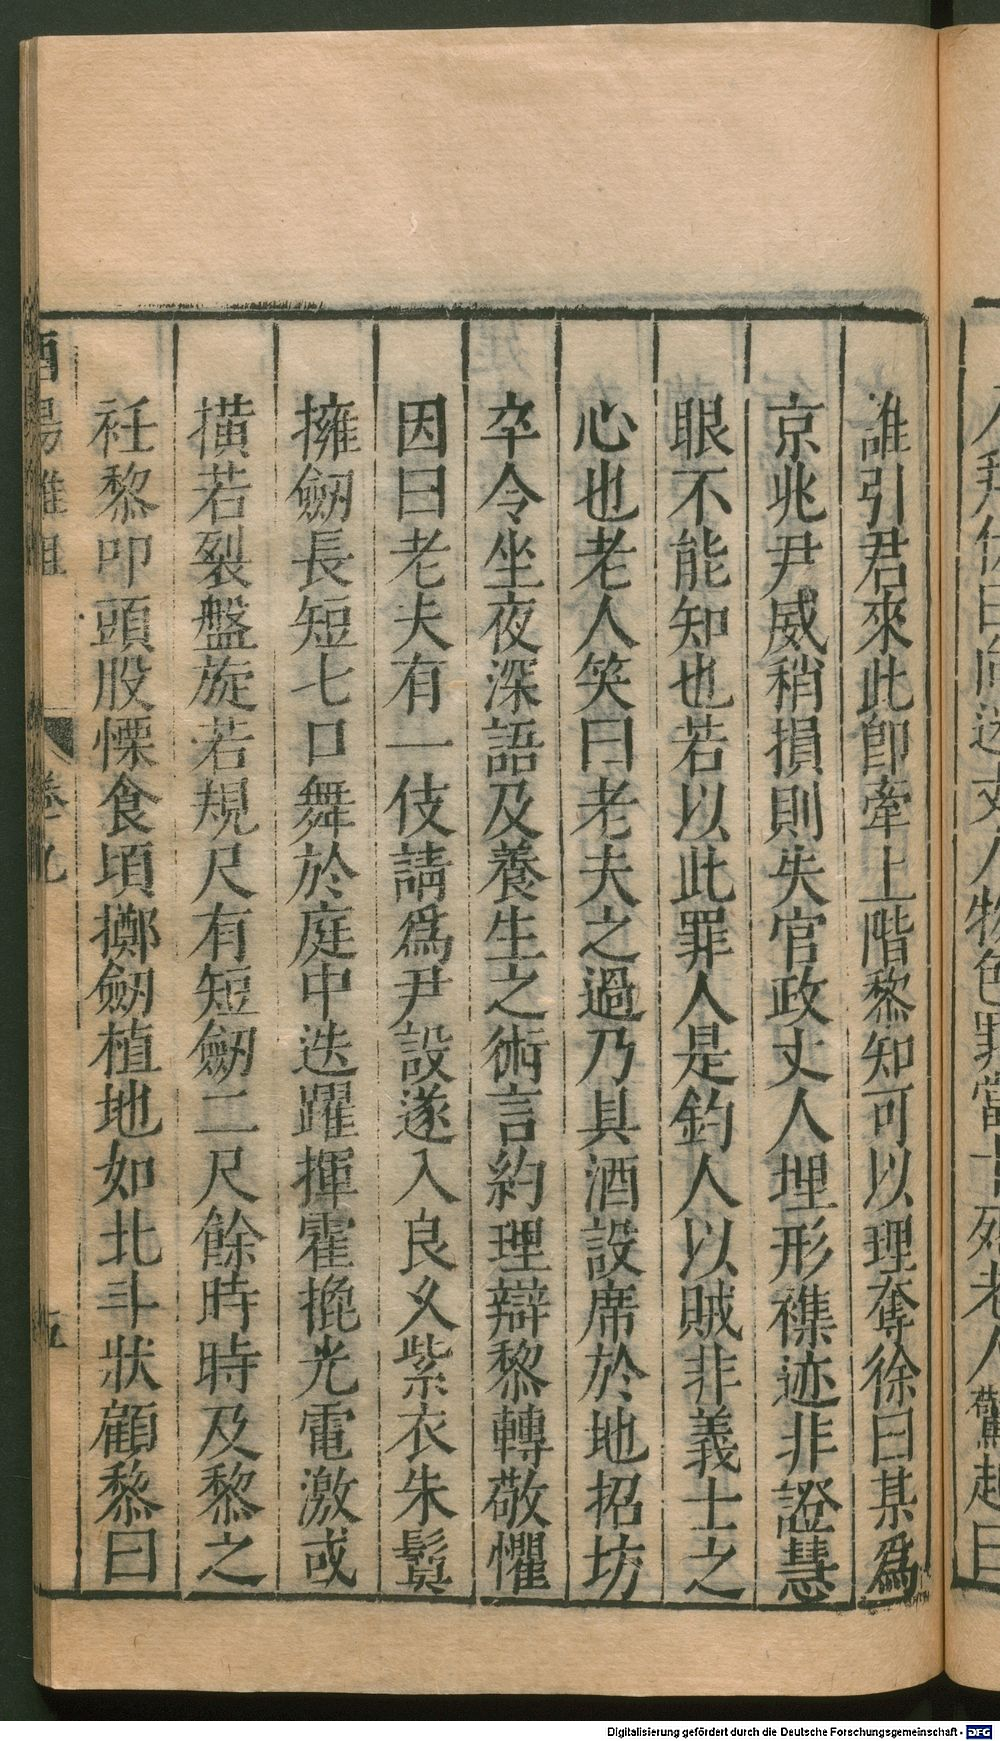 誰引君來此卽牽上階黎知可以理奪徐曰某爲
京兆尹威稍損則失官政丈人埋形襍迹非證慧
眼不能知也若以此罪人是釣人以賊非義士之
心也老人笑曰老夫之過乃具酒設席於地招坊
卒令坐夜深語及養生之術言約理辯黎轉敬懼
因曰老夫有一伎請爲尹設遂入良久紫衣朱鬒
擁劔長短七口舞於庭中迭躍揮霍㧢光電激或
橫若裂盤旋若規尺有短劔二尺餘時時及黎之
衽黎叩頭股慄食頃擲劔植地如北斗狀顧黎曰
酉陽雜俎
卷九
五
Digitalisierung gefördert durch die Deutsche Forschungsgemeinschaft - DFG